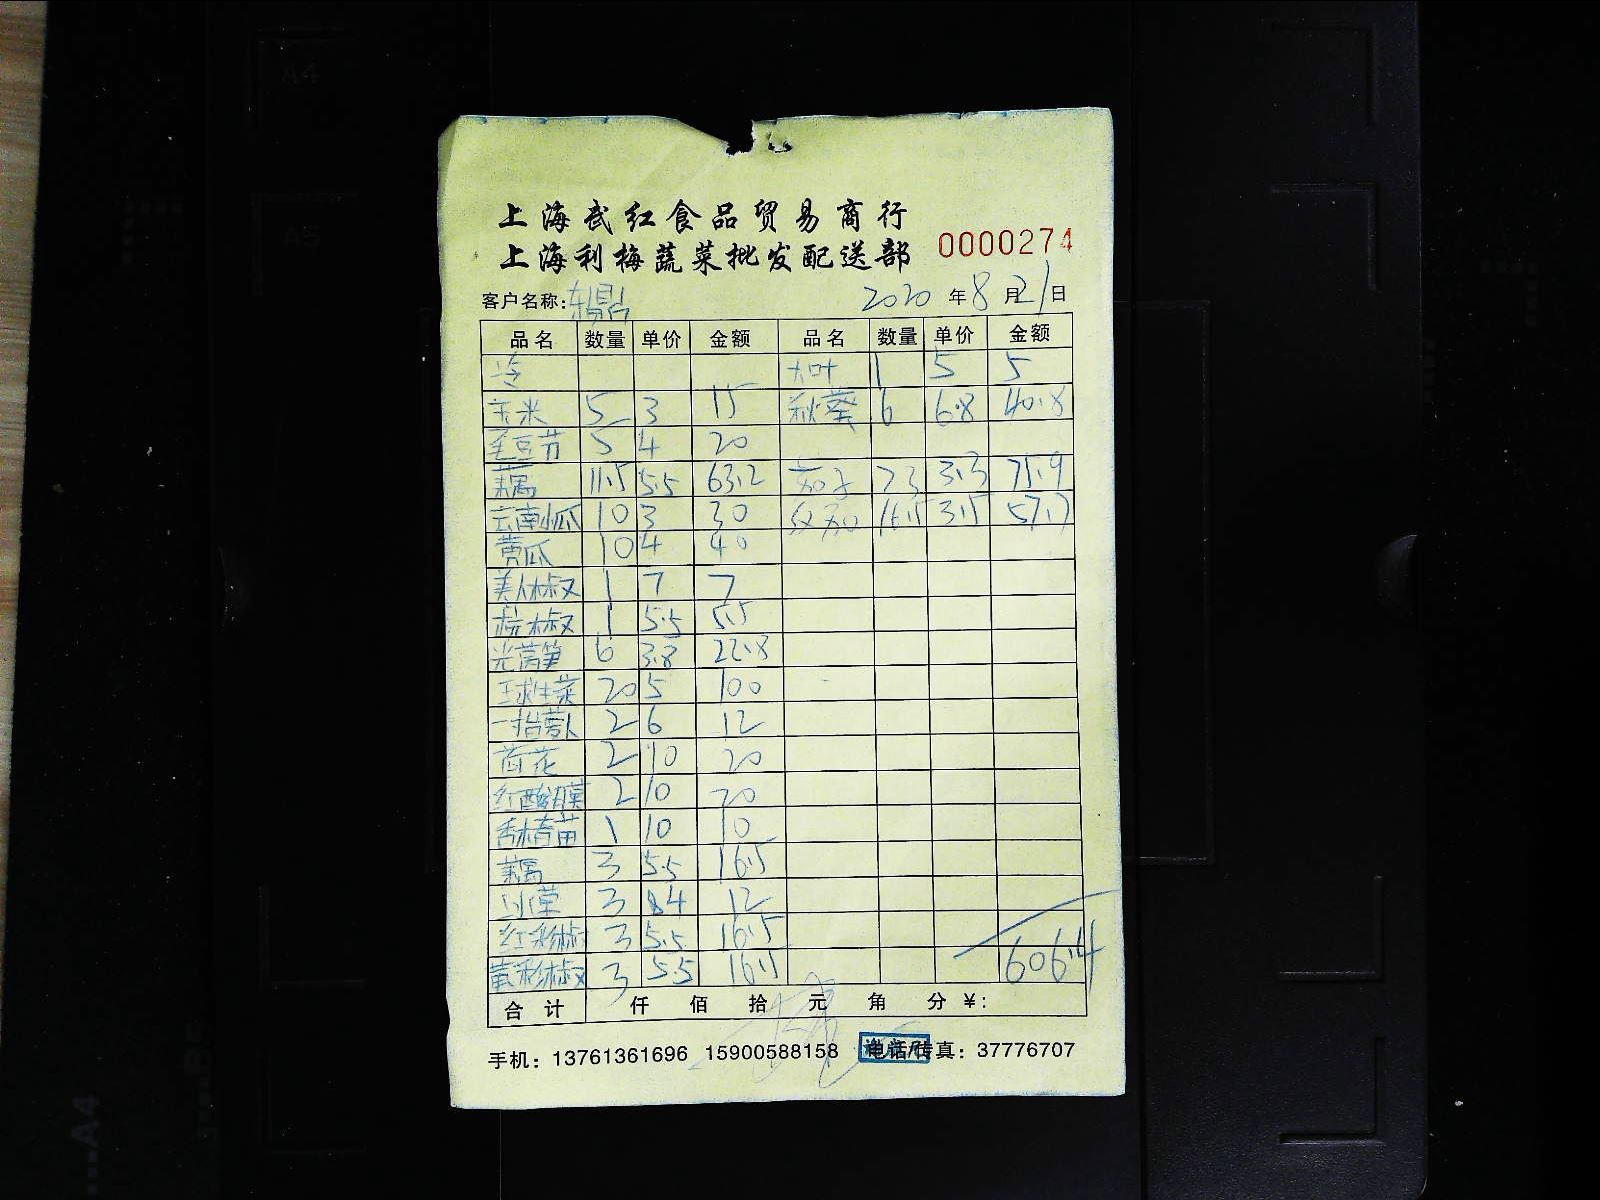 上海武红食品贸易商行
上海利梅蔬菜批发配送部 0000274
客户名称: 2020 年 8 月 21 日
品名 数量 单价 金额 品名 数量 单价 金额
冷 大叶 1 5 5
玉米 5 3 15 秋葵 6 6.8 40.8
毛豆节 5 4 20
藕 11.5 5.5 63.2 茄子 23 3.3 75.9
云南小瓜 10 3 30 16.5 3.5 57.7
黄瓜 10 4 40
美人椒 1 7 7
杭椒 1 5.5 5.5
光莴笋 6 3.8 22.8
球生菜 20 5 100
手指萝卜 2 6 12
荷花 2 10 20
红酸膜 2 10 20
香椿苗 1 10 10
藕 3 5.5 16.5
3 4 12
红彩椒 3 5.5 16.5
黄彩椒 3 5.5 16.5
606.4
合计 仟 佰 拾 元 角 分 ¥:
手机: 13761361696 15900588158 电话/传真: 37776707